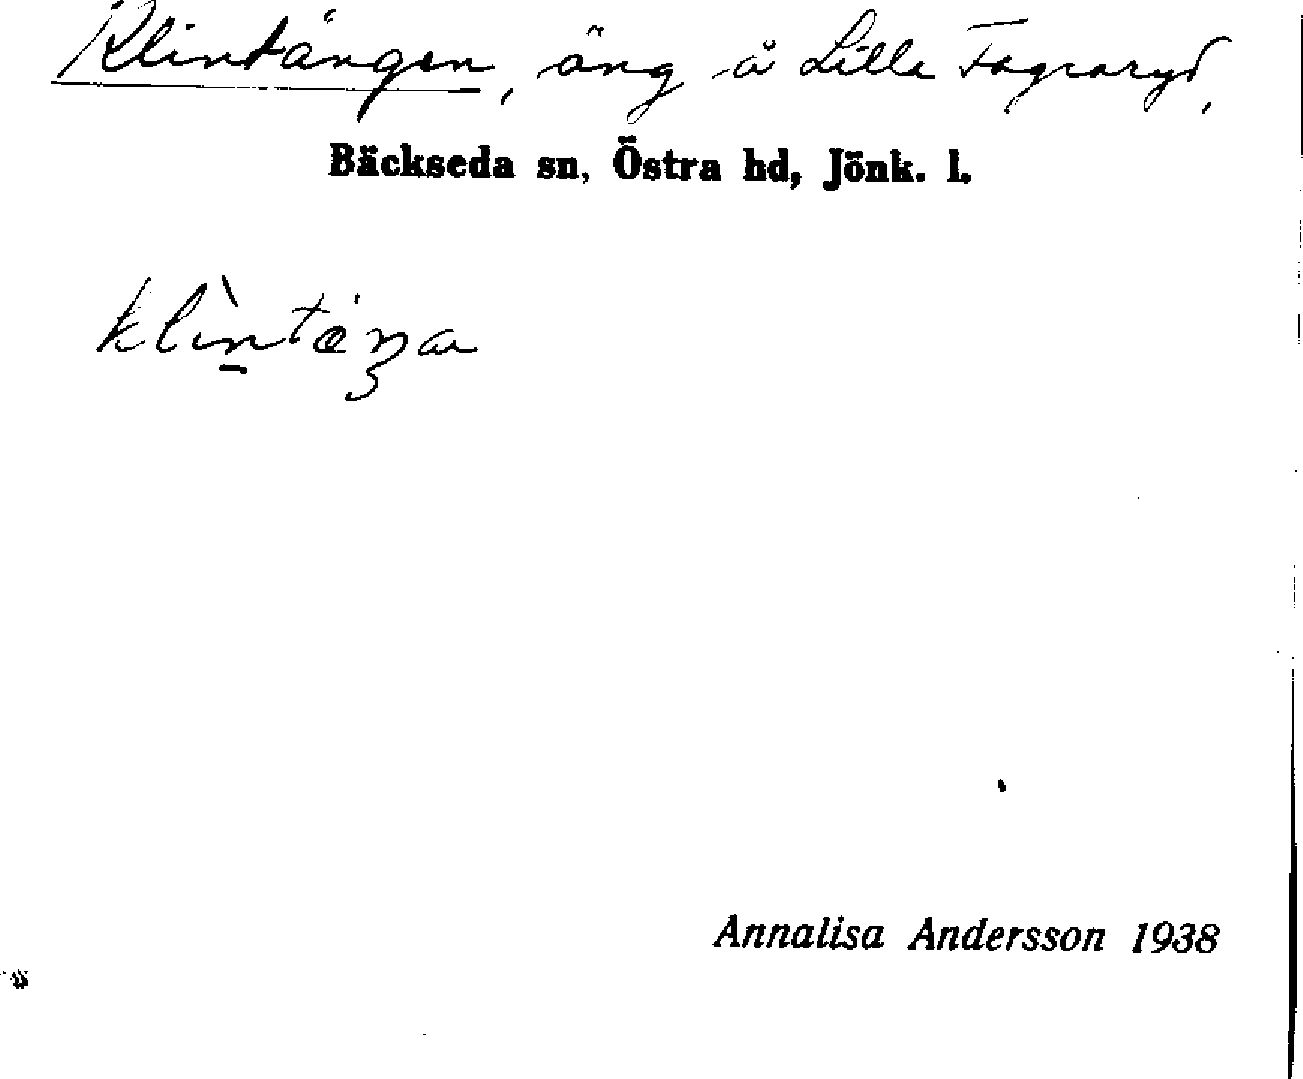 Klintängen, äng å Lilla Fagraryd,
Bäckseda sn, Östra hd, Jönk. l.
Annalisa Andersson 1938